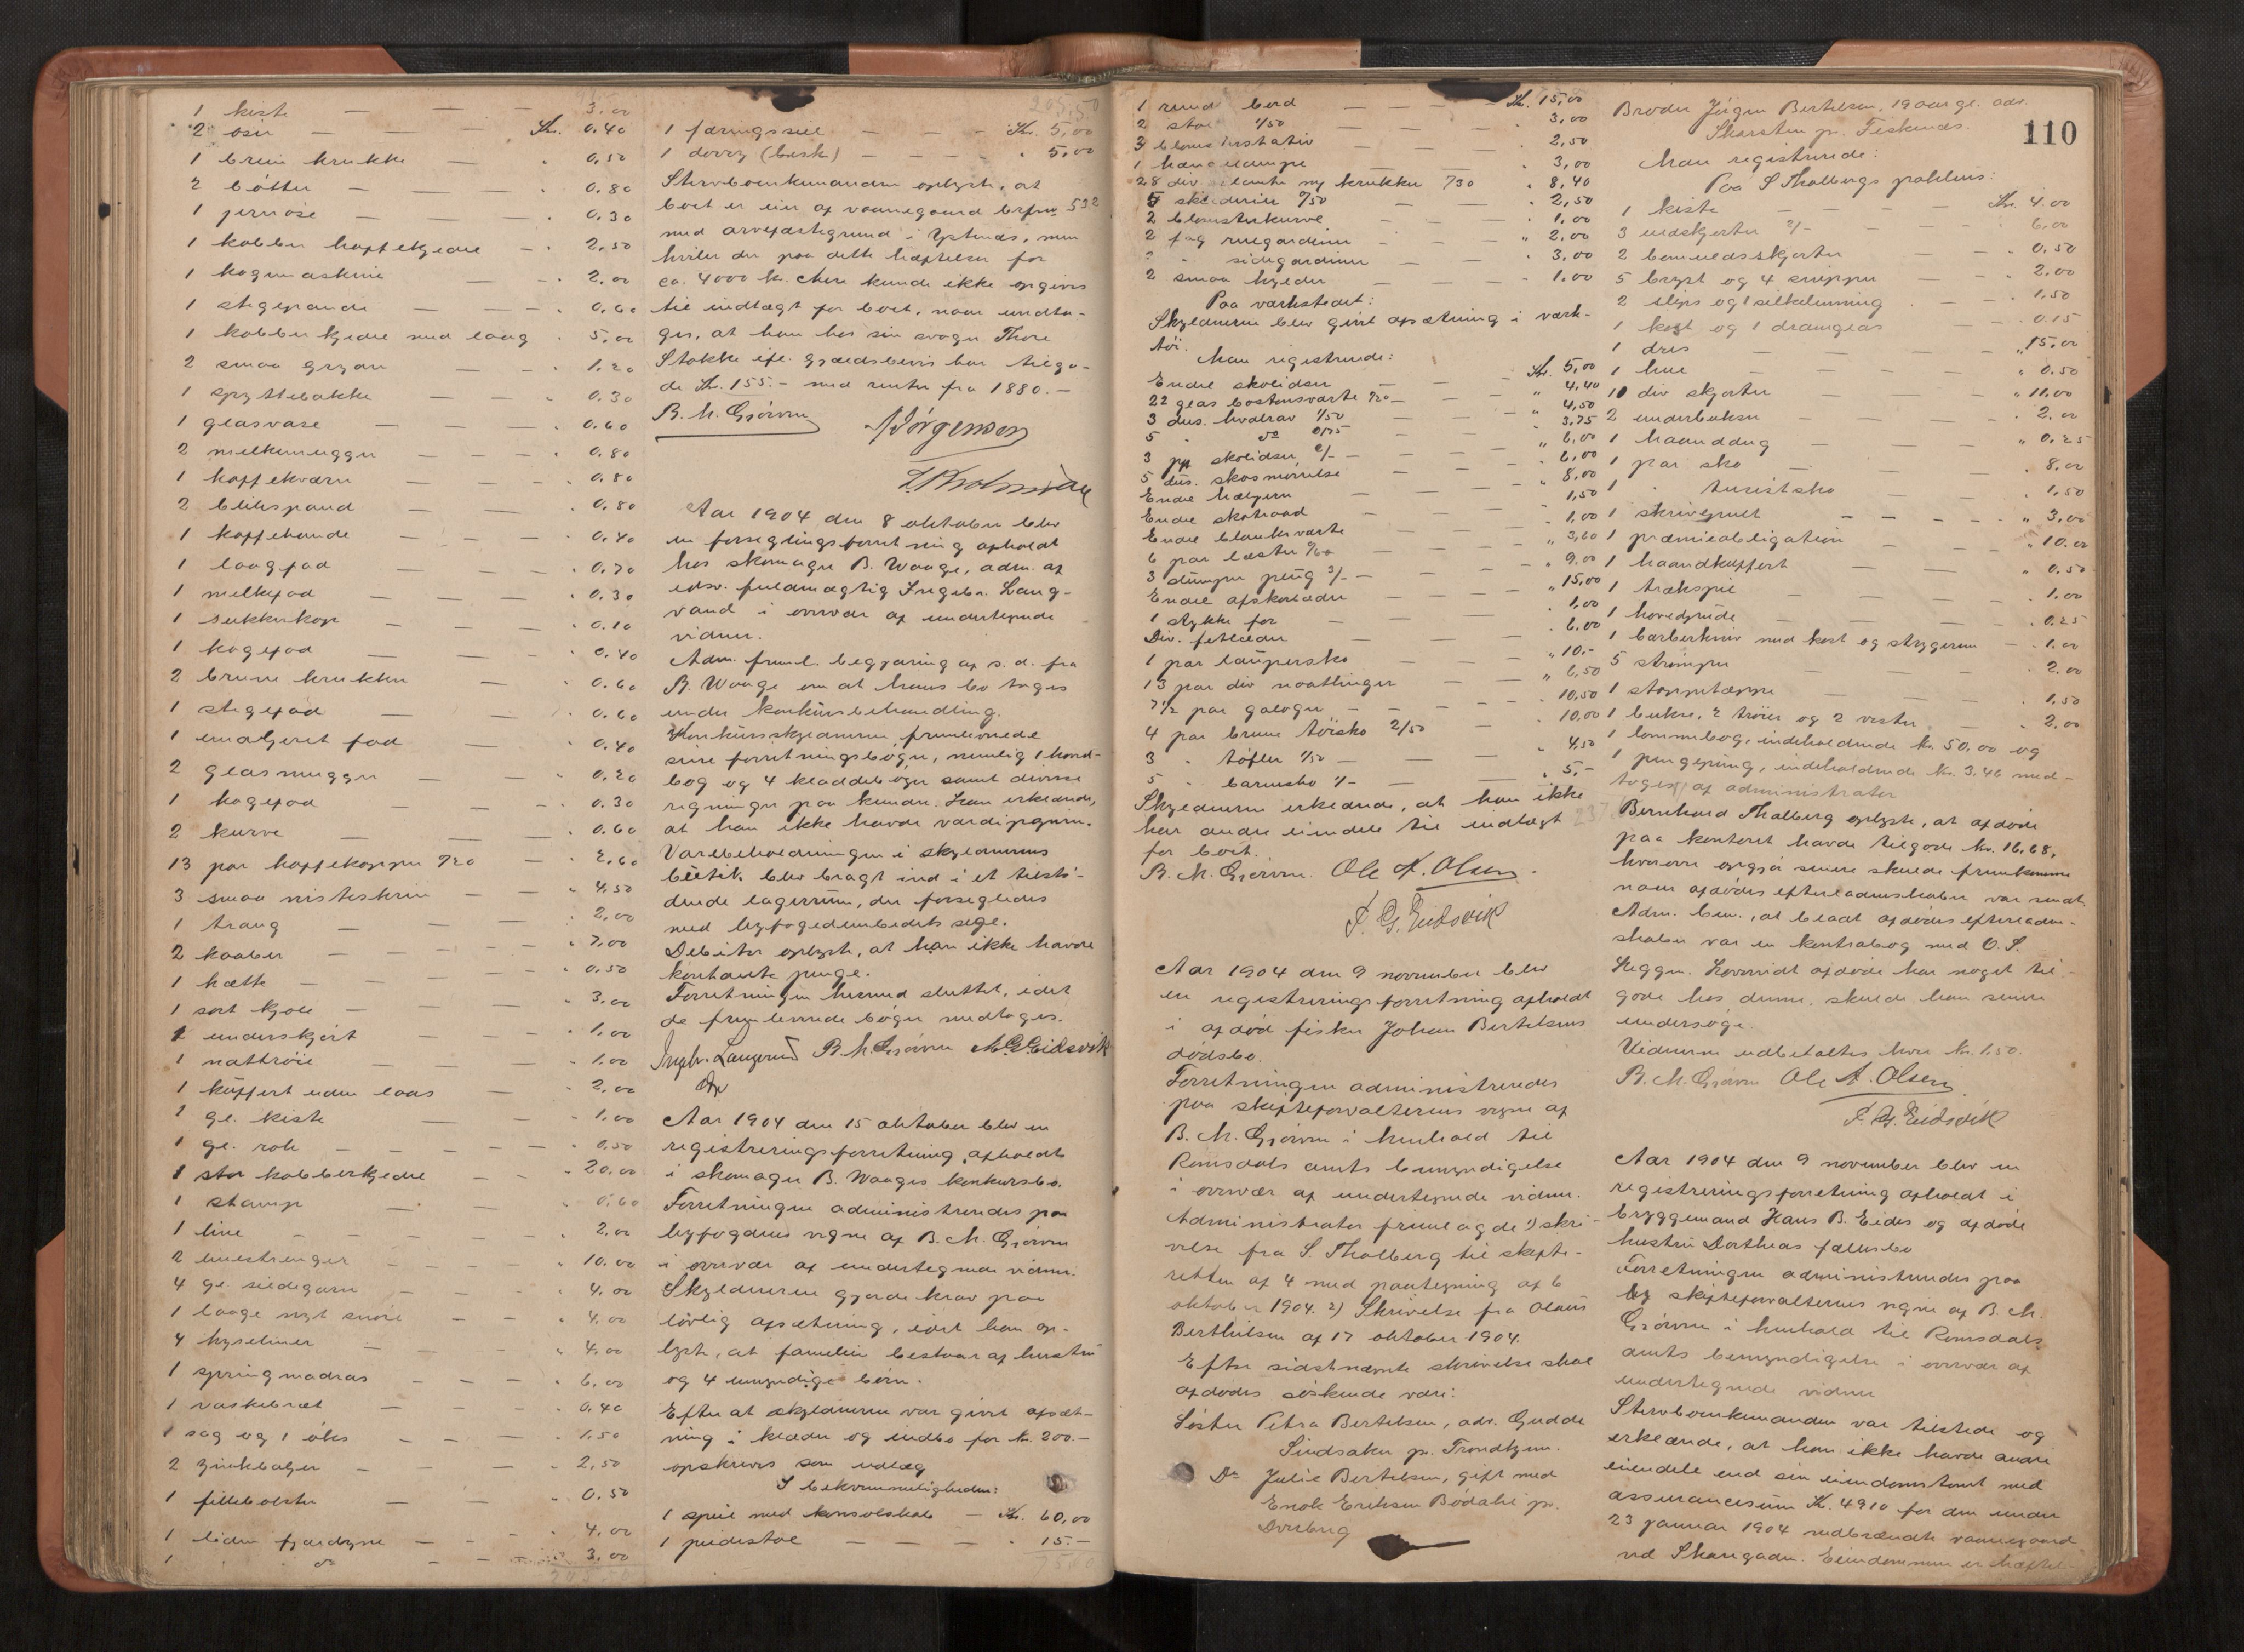 1 kiste — — — 3.00
2 øser — — — Kr. 0.40
1 brun krukke — " 0,50
2 bøtter — — " 0.80
1 jernøse — — " 0.30
1 kobber kaffekjedel — " 2,50
1 kogemaskine — " 2.00
1 stegepande — — " 0,60
1 kobberkjedel med laag " 5,00
2 smaa gryder — — " 1.20
1 spyttebakke — — " 0.30
1 glasvase — — — " 0.60
2 melkemugger — — " 0.80
1 kaffekværn — — " 0.80
2 blikspand — — " 0.80
1 kaffekande — — — " 0.40
1 laagfad — — — " 0.70
1 melkefad — — — " 0.30
1 sukkerkop — — " 0.10
1 kagefad — — — " 0.40
2 brune krukker — " 0.60
1 stegefad — — " 0.60
1 emaljeret fad — — " 0.40
2 glasmugger — — " 0.20
1 kagefad — — — " 0.30
2 kurve — — — " 0.60
13 par kaffekopper 0/20 — " 2,60
3 smaa nisteskrin — — " 4.50
1 traug — — — — " 2,00
2 kaaber — — — — " 7.00
1 hætte — — — " 0.50
1 sort kjole — — " 3.00
1 underskjørt — — — " 1.00
1 nattrøie — — — " 1.00
1 kuffert uden laas — " 2.00
1 gl. kiste — — " 1.00
1 gl. rok — — — — " 0,50
1 stor kobberkjedel — — " 20.00
1 stamp — — " 0,60
1 line — — — — — " 2.00
2 linestrenger — — — " 10.00
4 gl. sildegarn — — — " 4.00
1 laage nyt snøre — — " 4,00
4 hyseliner — — — " 4.00
1 springmadras — — — " 6,00
1 vaskebræt — — — " 0.40
1 sag og 1 øks — — — " 1.50
2 zinkbaljer — — — " 2,50
1 fillebolster — — " 0.50
1 liden fjærdyne — — " 4.00
1 " do — — " 3.00
205,50
1 færingsseil — — — Kr. 5,00
1 dorry (besk) — — — " 5,00
Stervboenkemanden oplyste, at
boet er eier af vaanegaard brfm 532
med arvefæstegrund i Ystenæs, men
hviler der paa dette hæftelser for
ca. 4000 kr. Mere kunde ikke opgives
til indtægt for boet, naar undta-
ges, at han hos sin svoger Thore
Stokke ifl. gjældsbevis har tilgo-
de Kr. 155.- med renter fra 1880.—
B. M. Gjørvm
Jørgensen
Aar 1904 den 8 oktober blev
en forseglingsforretning afholdt
hos skomager B. Waage, adm. af
edsv. fuldmægtig Ingebr. Lang-
vand i overvær af undertegnede
vidner.
Adm. freml. begjæring af s. d. fra
B. Waage om at hans bo toges
under konkursbehandling.
Konkursskyldneren fremleverede
sine forretningsbøger, nemlig 1 hoved-
bog og 4 kladdebøger samt diverse
regninger paa kunder. Han erklærede,
at han ikke havde værdipapirer.
Varebeholdningen i skyldnerens
butik blev bragt ind i et tilstø-
dende lagerrum, der forsegledes
med byfogedembedets segl.
Debitor oplyste, at han ikke havde
kontante penge.
Forretningen hermed sluttet, idet
de fremleverede bøger medtoges.
Ingbr. Langvand B. M. Gjørvm M. G. Eidsvik
Aar 1904 den 15 oktober blev en
registreringsforretning afholdt
i skomager B. Waages konkursbo.
Forretningen administreredes paa
byfogdens vegne af B. M. Gjørvm
i overvær af undertegnede vidner.
Skyldneren gjorde krav paa
lovlig afsætning, idet han op-
lyste, at familien bestaar af hustru
og 4 umyndige børn.
Efter at skyldneren var givet afsæt-
ning i klæder og indbo for Kr. 200.—
opskreves som udlæg
I bekvemmeligheden:
1 speil med konsolskab — Kr. 60,00
1 piedestal — — — " 15.—
1 rund bord — — — Kr. 15,00
2 stole 1/50 — — — " 3.00
3 blomsterstativ — — " 2,50
1 hængelampe — — " 3,00
28 div. ny krukker 0/30 " 8,40
5 skilderier 0/50 — — " 2,50
2 blomsterkurve — — " 1.00
2 fag rullegardiner — — " 2,00
2 " sidegardiner — — " 3,00
2 smaa hylder — — " 1.00
Paa værkstedet:
Skyldneren blev givet afsætning i værk-
tøi.
Man registrerede:
Endel skolidser — — Kr. 5,00
22 glas bostonsværte 0/20 — " 4,40
3 dus. hvalrav 1/50 — — " 4,50
5 " do 0/75 — — " 3,75
3 pk skolidser 2/- — — " 6,00
5 dus. skosmørelse — — " 6,00
Endel hælejern — — " 8,00
Endel skotraad — — " 1,50
Endel blanksværte — — " 1,00
6 par læster 0/60 — — " 3,60
3 dumper pling 3/- — — " 9,00
Endel afskolæder — — " 15,00
1 stykke for — — " 1,00
Div. fetlæder — — " 6.00
1 par laupersko — — " 10.-
13 par div naatlinger — — " 6,50
7½ par galoger — — " 10,50
4 par brune tøisko 2/50 — " 10,00
3 " tøfler 1/50 — — " 4,50
5 " barnesko 1/- — — " 5.-
Skyldneren erklærede, at han ikke
har andre eiendele til indtægt
for boet.
B. M. Gjørvm Ole A. Olsen.
P. G. Eidsvik
Aar 1904 den 9 november blev
en registreringsforretning afholdt
i afdød fisker Johan Bertelsens
dødsbo.
Forretningen administreredes
paa skifteforvalterens vegne af
B. M. Gjørvm i henhold til
Romsdals amts bemyndigelse
i overvær af undertegnede vidner.
Administrator fremlagde 1) skri-
velse fra S. Thalberg til skifte-
retten af 4 med paategning af 6
oktober 1904. 2) Skrivelse fra Olaus
Berthelsen af 17 oktober 1904.
Efter sidstnævnte skrivelse skal
afdødes søskende være:
Søster Petra Bertelsen, adr. Gudde
Sindsaker pr. Trondhjem.
Do Julie Bertelsen, gift med
Enok Eriksen Bødalie pr.
Dverberg
Broder Jørgen Bertelsen, 19 aar gl. adr.
Skarsten pr. Fiskenæs.
110
Man registrerede:
Paa S Thalbergs pakhus:
1 kiste — — — Kr. 4.00
3 uldskjorter 2/- — — " 6,00
2 bomuldsskjorter — " 0,50
5 bryst og 4 snipper — " 2,00
2 slips og 1 silkelinning — " 1,50
1 kost og 1 dramglas — " 0.15
1 dres — — — " 15,00
1 hue — — — " 0.50
10 div skjorter — — " 11.00
2 underbukser — — " 2.00
1 haanddug — — — " 0,25
1 par sko — — — " 8,00
1 " turistsko — — " 1,50
1 skrivepult — — — " 3,00
1 præmieobligation — — " 10.00
1 haandkuffert — — " 0.50
1 trækspil — — — " 1.00
1 hovedpude — — " 0.25
1 barberkniv med kost og strygerem — " 1.00
5 strømper — — " 2.00
1 stoppetæppe — — " 1,50
1 bukse, 2 trøier og 2 veste — " 2,00
1 lommebog, indeholdende kr. 50,00 og
1 pengepung, indeholdende Kr. 3,46 med-
toges af administrator
Bernhard Thalberg oplyste, at afdøde
paa kontoret havde tilgode Kr. 16,68,
hvorover opgjør senere skulde fremkomme
naar afdødes efterladenskaber var sendt.
Adm. bem., at blandt afdødes efterladen-
skaber var en kontrabog med O. S.
Heggen. Hvorvidt afdøde har noget til-
gode hos denne, skulde han senere
undersøge.
Vidnerne udbetaltes hver Kr. 1.50.
B. M. Gjørvm Ole A. Olsen
P. G. Eidsvik
Aar 1904 den 9 november blev en
registreringsforretning afholdt i
bryggemand Hans B. Eides og afdøde
hustru Dortheas fællesbo
Forretningen administreredes paa
by skifteforvalterens vegne af B. M.
Gjørvm i henhold til Romsdals
amts bemyndigelse i overvær af
undertegnede vidner
Stervboenkemanden var tilstede og
erklærede, at han ikke havde andre
eiendele end sin eiendomstomt med
assurancesum Kr. 4910 for den under
23 januar 1904 nedbrændte vaanegaard
ved Skarugaden. Eiendommen er hæftel-